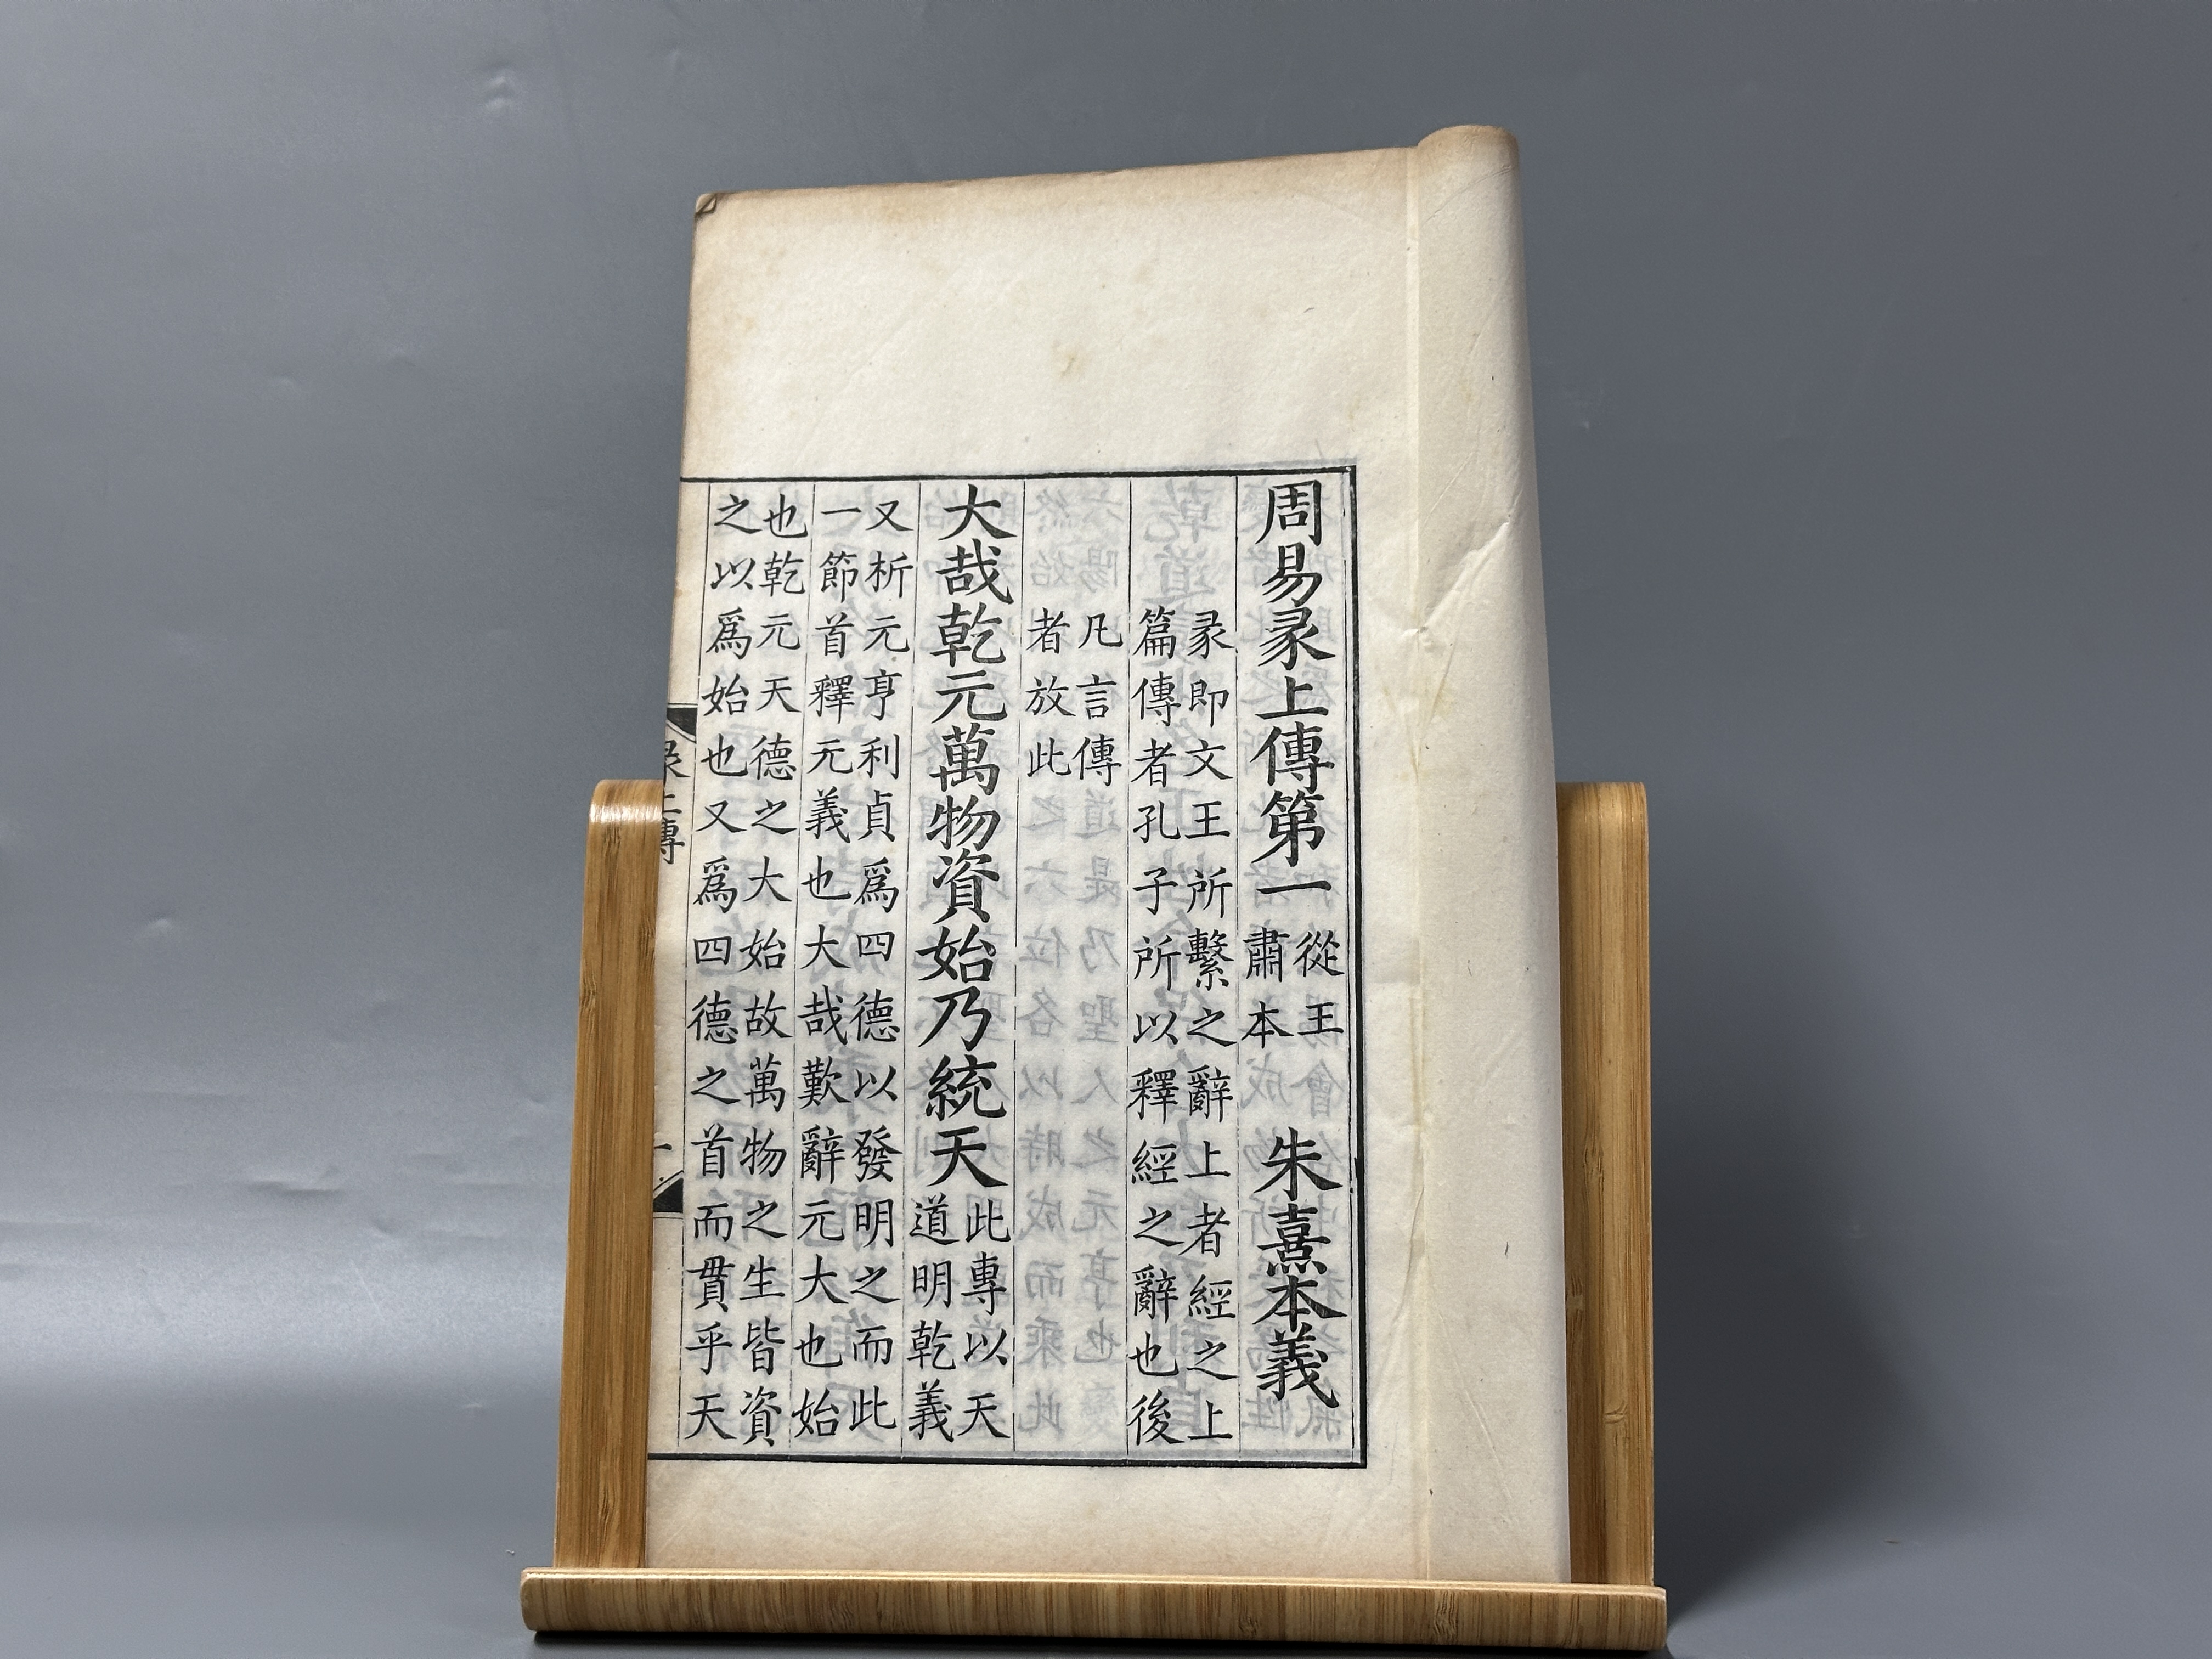 周易彖上傳第一從王肅本 朱熹本義
彖即文王所繫之辭上者經之上
篇傳者孔子所以釋經之辭也後
凡言傳
者放此
大哉乾元萬物資始乃統天此專以天
道明乾義
又析元亨利貞爲四德以發明之而此
一節首釋元義也大哉歎辭元大也始
也乾元天德之大始故萬物之生皆資
之以爲始也又爲四德之首而貫乎天
彖上傳
一